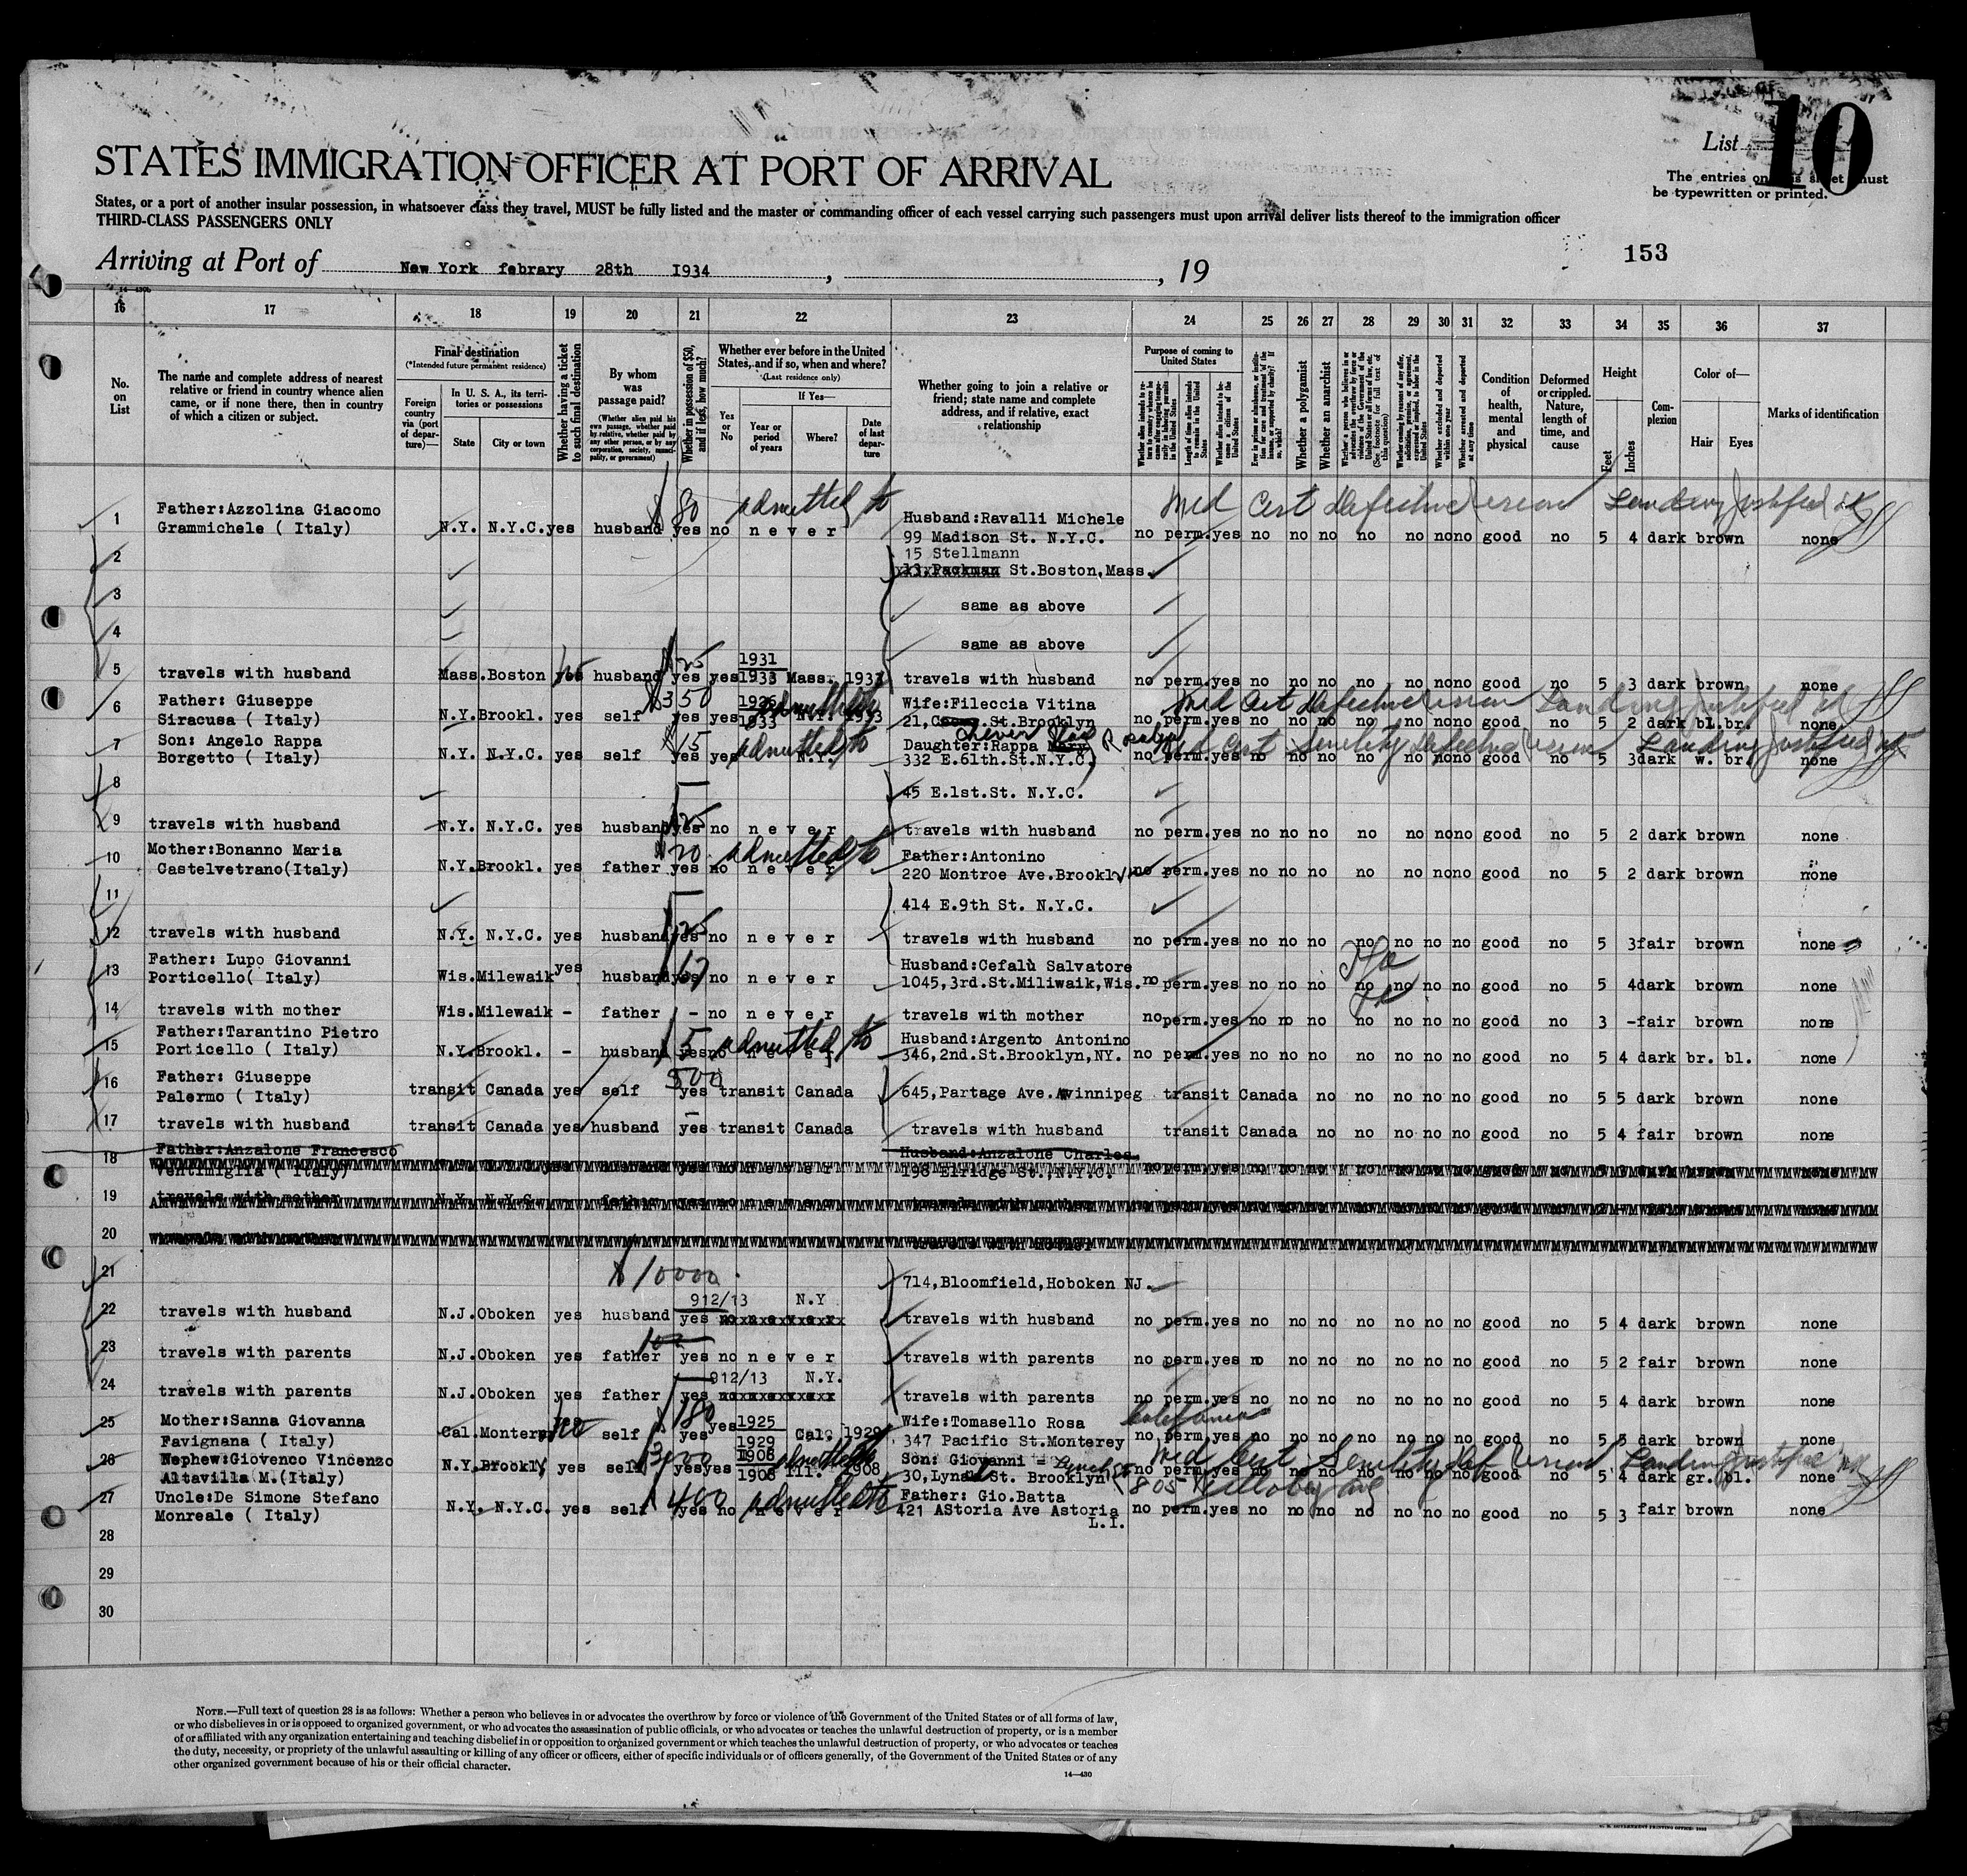 List 10
The entries on this sheet must
be typewritten or printed.
STATES IMMIGRATION OFFICER AT PORT OF ARRIVAL
States, or a port of another insular possession, in whatsoever class they travel, MUST be fully listed and the master or commanding officer of each vessel carrying such passengers must upon arrival deliver lists thereof to the immigration officer
THIRD-CLASS PASSENGERS ONLY
153
Arriving at Port of New York febrary 28th 1934 , , 19
16 17 18 19 20 21 22 23 24 25 26 27 28 29 30 31 32 33 34 35 36 37
No. on List
The name and complete address of nearest
relative or friend in country whence alien
came, or if none there, then in country
of which a citizen or subject.
Final destination
(*Intended future permanent residence)
Foreign country via (port of departure)—
In U. S. A., its territories or possessions
State City or town
Whether having a ticket to such final destination
By whom was passage paid?
(Whether alien paid his own passage, whether paid by relative, whether paid by any other person, or by any corporation, society, municipality, or government)
Whether in possession of $50, and if less, how much?
Whether ever before in the United
States, and if so, when and where?
(Last residence only)
If Yes—
Yes or No
Year or period of years
Where?
Date of last departure
Whether going to join a relative or
friend; state name and complete
address, and if relative, exact
relationship
Purpose of coming to United States
Length of time alien intends to remain in the United States
Whether alien intends to become a citizen of the United States
Whether a polygamist
Whether an anarchist
Whether excluded and deported within one year
Whether arrested and deported at any time
Condition of health, mental and physical
Deformed or crippled. Nature, length of time, and cause
Height
Feet Inches
Complexion
Color of—
Hair Eyes
Marks of identification
$80 admitted to Med Cert Defective vision Landing justified
1 Father:Azzolina Giacomo Husband:Ravalli Michele
Grammichele ( Italy) N.Y. N.Y.C. yes husband yes no never 99 Madison St. N.Y.C. no perm. yes no no no no no no no good no 5 4 dark brown none
2 15 Stellmann
St.Boston,Mass.
3 same as above
4 same as above
5 travels with husband Mass.Boston yes husband $25 yes yes 1931 1933 Mass. 1933 travels with husband no perm. yes no no no no no no no good no 5 3 dark brown none
6 Father: Giuseppe $350 admitted Wife:Fileccia Vitina Med Cert Defective vision Landing justified
Siracusa ( Italy) N.Y.Brookl. yes self yes yes 1926 1933 N.Y. 1933 21, St.Brooklyn no perm. yes no no no no no no no good no 5 2 dark bl.br. none
7 Son: Angelo Rappa $15 admitted to Daughter:Rappa Mary Rosalyn Med Cert Senility Defective vision Landing justified
Borgetto ( Italy) N.Y. N.Y.C. yes self yes yes N.Y. 332 E.61th.St.N.Y.C. no perm. yes no no no no no no no good no 5 3 dark w. br. none
8 45 E.1st.St. N.Y.C.
9 travels with husband N.Y. N.Y.C. yes husband $25 yes no never travels with husband no perm. yes no no no no no no no good no 5 2 dark brown none
10 Mother:Bonanno Maria $20 admitted to Father:Antonino
Castelvetrano(Italy) N.Y.Brookl. yes father yes no never 220 Montroe Ave.Brookly no perm. yes no no no no no no no good no 5 2 dark brown none
11 414 E.9th St. N.Y.C.
12 travels with husband N.Y. N.Y.C. yes husband $25 yes no never travels with husband no perm. yes no no no no no no no good no 5 3 fair brown none
13 Father: Lupo Giovanni Husband:Cefalù Salvatore
Porticello( Italy) Wis.Milewaik yes husband yes no never 1045,3rd.St.Miliwaik,Wis. no perm. yes no no no no no no no good no 5 4 dark brown none
14 travels with mother Wis.Milewaik - father - no never travels with mother no perm. yes no no no no no no no good no 3 - fair brown none
15 Father:Tarantino Pietro $5 admitted to Husband:Argento Antonino
Porticello ( Italy) N.Y.Brookl. - husband yes no never 346,2nd.St.Brooklyn,NY. no perm. yes no no no no no no no good no 5 4 dark br. bl. none
16 Father: Giuseppe 500
Palermo ( Italy) transit Canada yes self yes transit Canada 645,Partage Ave. Winnipeg transit Canada no no no no no good no 5 5 dark brown none
17 travels with husband transit Canada yes husband yes transit Canada travels with husband transit Canada no no no no no good no 5 4 fair brown none
18 Father:Anzalone Francesco Husband:Anzalone Charles
Ventimiglia ( Italy) 198 Elridge St.,N.Y.C.
19 travels with mother N.Y. N.Y.C. father yes no never
20
21 $10000 714,Bloomfield,Hoboken NJ.
22 travels with husband N.J.Oboken yes husband yes 912/13 N.Y travels with husband no perm. yes no no no no no no no good no 5 4 dark brown none
23 travels with parents N.J.Oboken yes father yes no never travels with parents no perm. yes no no no no no no no good no 5 2 fair brown none
24 travels with parents N.J.Oboken yes father yes 912/13 N.Y. travels with parents no perm. yes no no no no no no no good no 5 4 dark brown none
25 Mother:Sanna Giovanna $180 Wife:Tomasello Rosa California
Favignana ( Italy) Cal.Monterey yes self yes yes 1925 1929 Cal. 1929 347 Pacific St.Monterey no perm. yes no no no no no no no good no 5 5 dark brown none
26 Nephew:Giovenco Vincenzo admitted Son: Giovanni Med Cert Senility Def vision Landing justified
Altavilla M.(Italy) N.Y.Brookly yes self yes yes 1906 1908 Ill. 1908 30, St. Brooklyn no perm. yes no no no no no no no good no 5 4 dark gr. bl. none
805 Ave
27 Uncle:De Simone Stefano $400 admitted to Father: Gio.Batta
Monreale ( Italy) N.Y. N.Y.C. yes self yes no never 421 AStoria Ave Astoria no perm. yes no no no no no no no good no 5 3 fair brown none
L.I.
28
29
30
NOTE.—Full text of question 28 is as follows: Whether a person who believes in or advocates the overthrow by force or violence of the Government of the United States or of all forms of law,
or who disbelieves in or is opposed to organized government, or who advocates the assassination of public officials, or who advocates or teaches the unlawful destruction of property, or is a member
of or affiliated with any organization entertaining and teaching disbelief in or opposition to organized government or which teaches the unlawful destruction of property, or who advocates or teaches
the duty, necessity, or propriety of the unlawful assaulting or killing of any officer or officers, either of specific individuals or of officers generally, of the Government of the United States or of any
other organized government because of his or their official character.
14—430